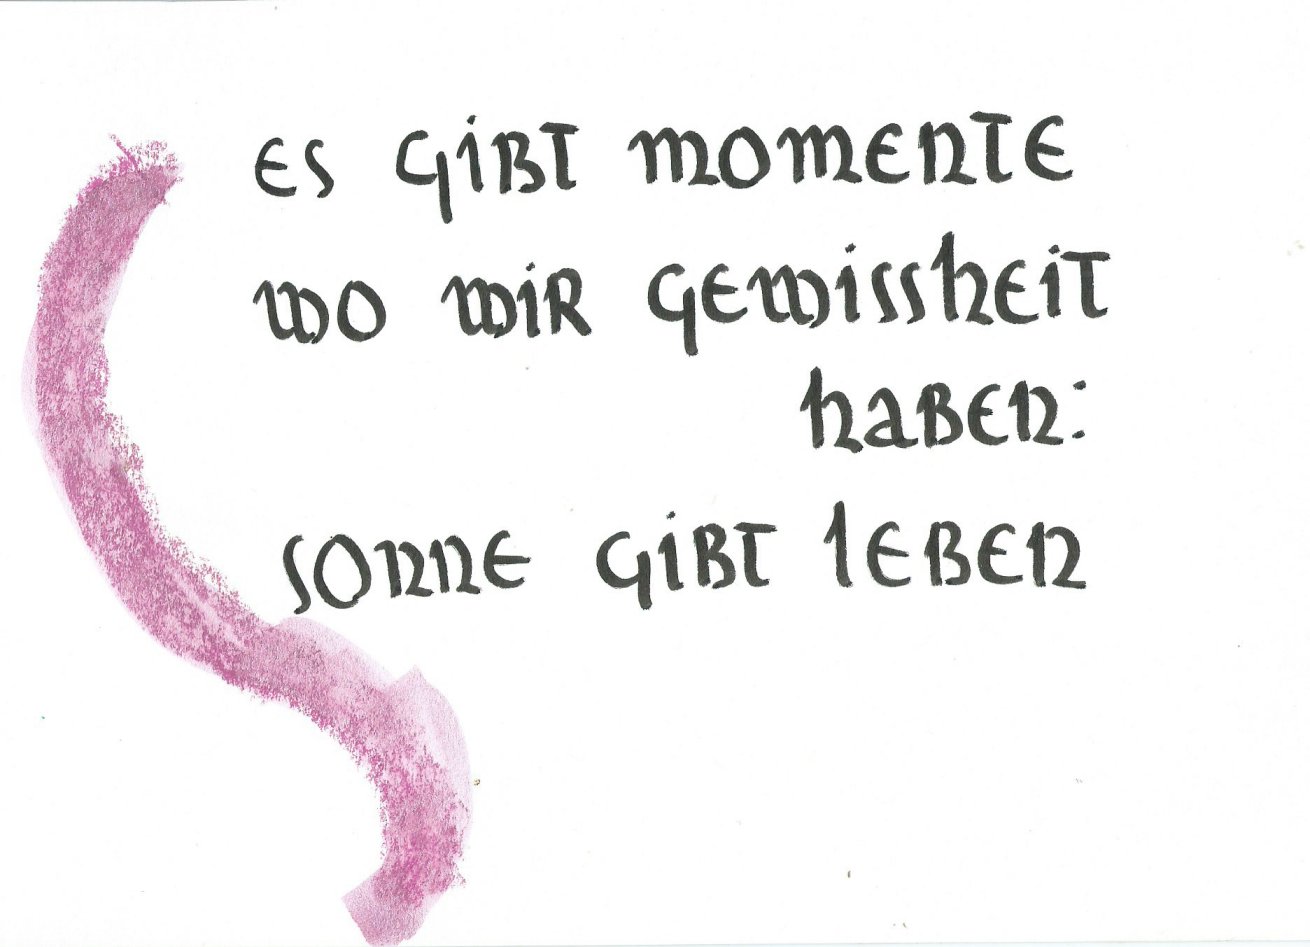 Es gibt Momente
wo wir Gewissheit
haben:
Sonne gibt Leben